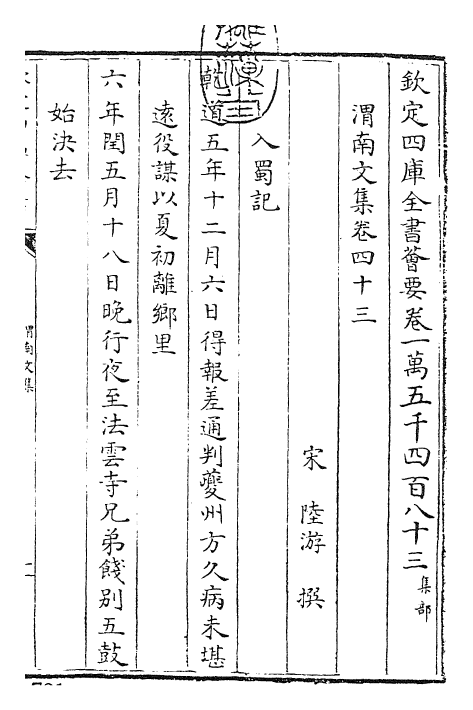 欽定四庫全書薈要卷一萬五千四百八十三集部
渭南文集卷四十三
宋 陸游 撰
入蜀記
乾道五年十二月六日得報差通判夔州方久病未堪
遠役謀以夏初離鄉里
六年閏五月十八日晚行夜至法雲寺兄弟餞别五鼓
始決去
渭南文集